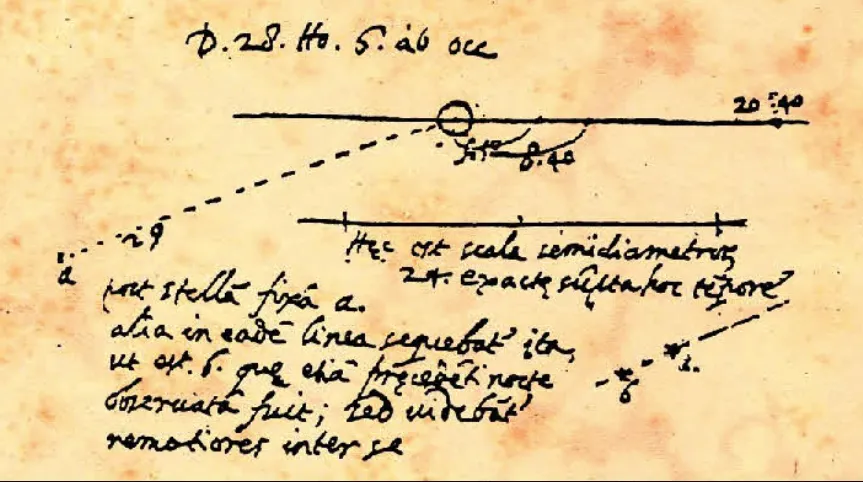 D. 28. Ho. 6. ab occ
20 :40
8.40
a
Hęc est scala semidiametroꝝ
24. exactę sũpta hoc tẽpore
post stellã fixã a.
alia in eadẽ linea sequebat' ita,
ut est. b. quę etiã pręcedẽti nocte
obseruata fuit; sed uidebãt'
remotiores inter se
a.
b